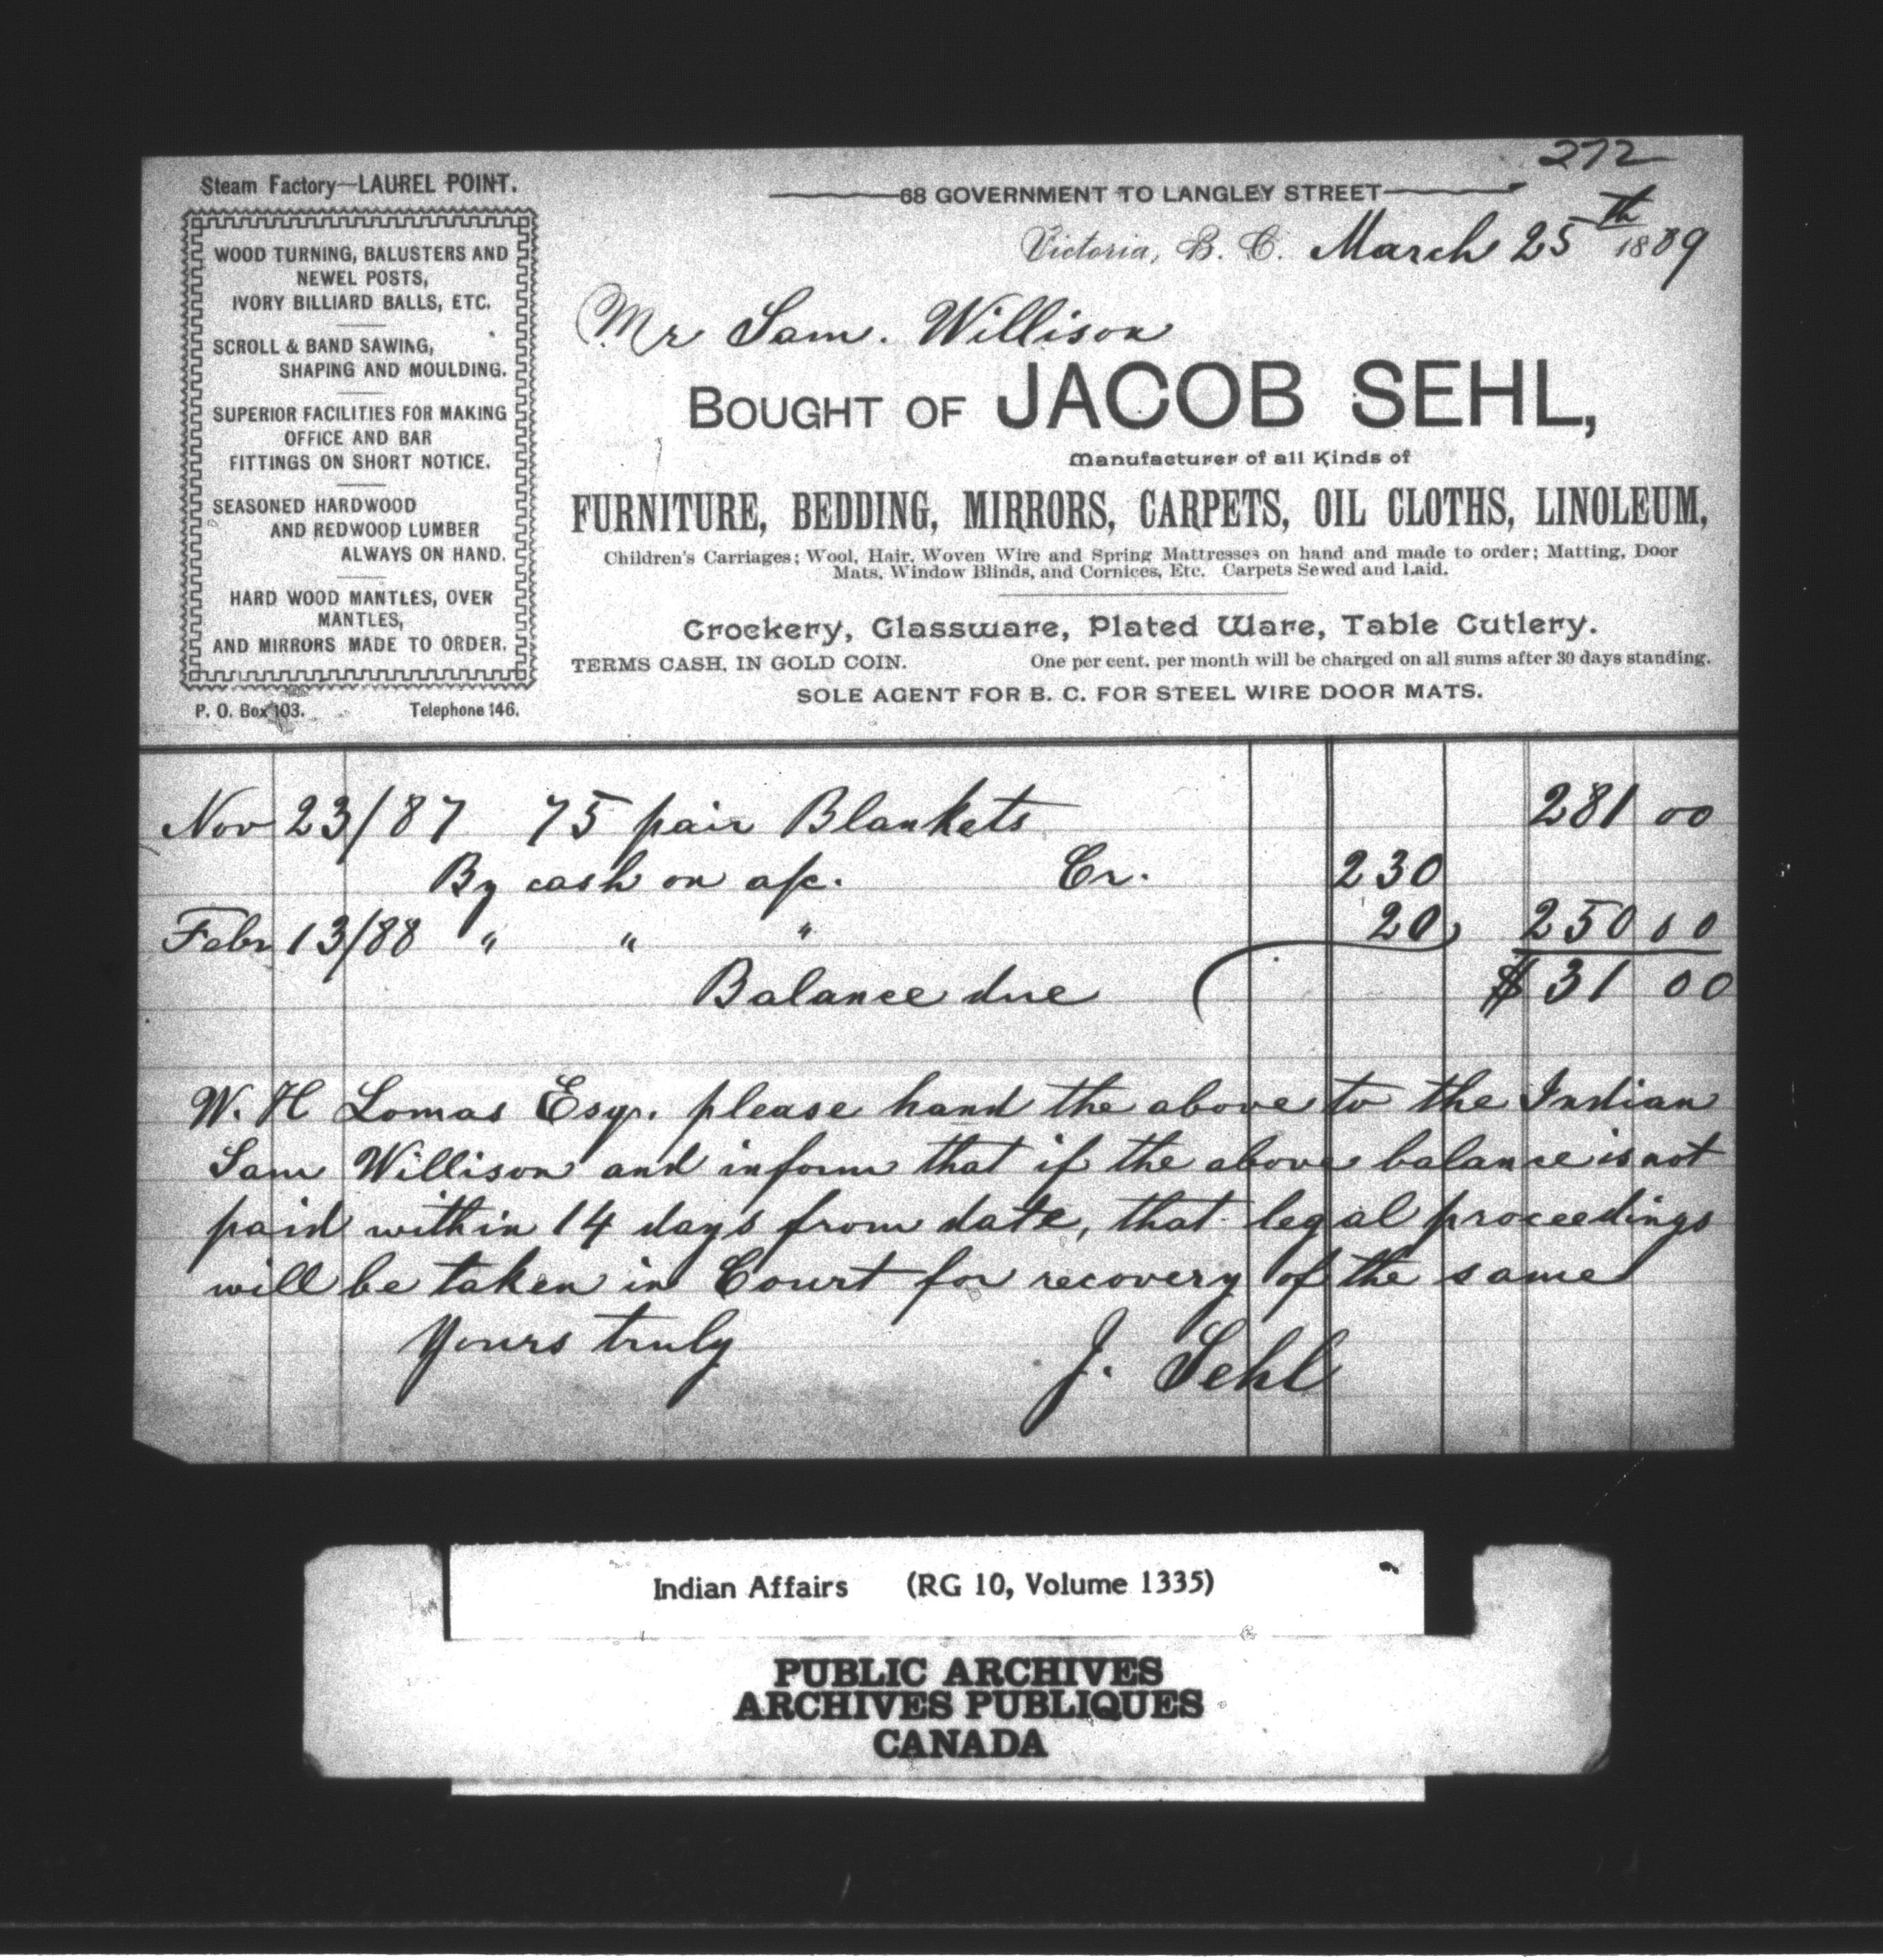 272
Steam Factory—LAUREL POINT.
WOOD TURNING, BALUSTERS AND
NEWEL POSTS,
IVORY BILLIARD BALLS, ETC.
SCROLL & BAND SAWING,
SHAPING AND MOULDING.
SUPERIOR FACILITIES FOR MAKING
OFFICE AND BAR
FITTINGS ON SHORT NOTICE.
SEASONED HARDWOOD
AND REDWOOD LUMBER
ALWAYS ON HAND.
HARD WOOD MANTLES, OVER
MANTLES,
AND MIRRORS MADE TO ORDER.
P. O. Box 103. Telephone 146.
68 GOVERNMENT TO LANGLEY STREET
Victoria, B. C. March 25th 1889
Mr Sam. Willison
BOUGHT OF JACOB SEHL,
Manufacturer of all Kinds of
FURNITURE, BEDDING, MIRRORS, CARPETS, OIL CLOTHS, LINOLEUM,
Children's Carriages; Wool, Hair, Woven Wire and Spring Mattresses on hand and made to order; Matting, Door
Mats, Window Blinds, and Cornices, Etc. Carpets Sewed and Laid.
Crockery, Glassware, Plated Ware, Table Cutlery.
TERMS CASH, IN GOLD COIN. One per cent. per month will be charged on all sums after 30 days standing.
SOLE AGENT FOR B. C. FOR STEEL WIRE DOOR MATS.
Nov 23/87 75 pair Blankets 281 00
By cash on a/c. Cr. 230
Febr 13/88 " " " 20 250 00
Balance due $ 31 00
W. H Lomas Esqr. please hand the above to the Indian
Sam Willison and inform that if the above balance is not
paid within 14 days from date, that legal proceedings
will be taken in Court for recovery of the same
Yours truly J. Sehl
Indian Affairs (RG 10, Volume 1335)
PUBLIC ARCHIVES
ARCHIVES PUBLIQUES
CANADA